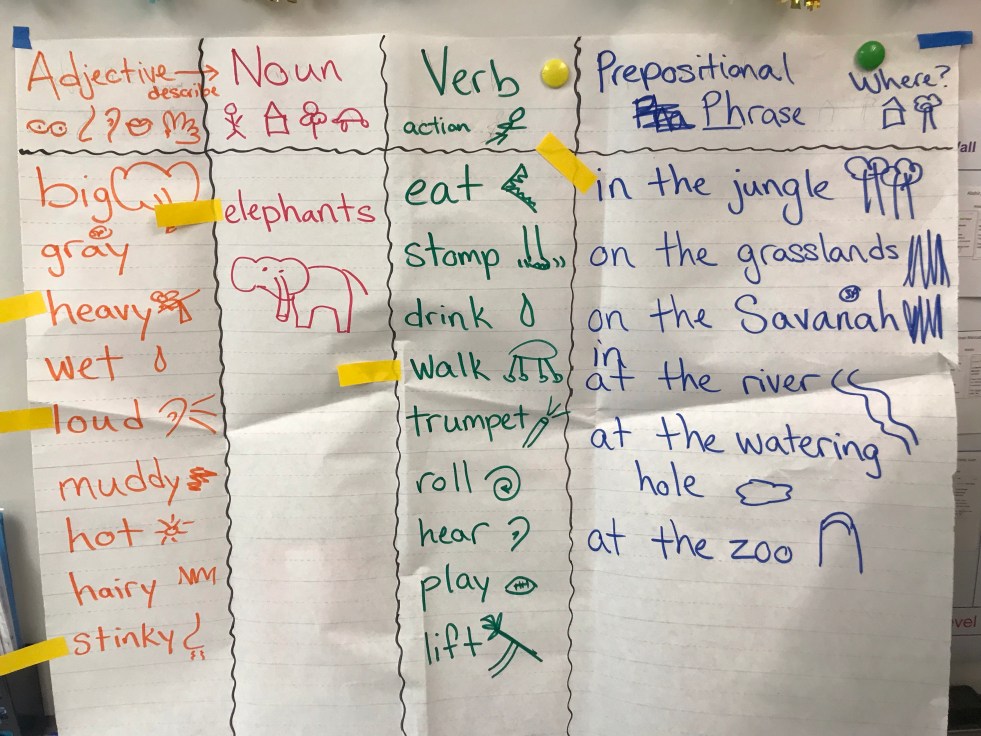 Adjective
describe
Noun
Verb
action
Prepositional
Phrase
Where?
big
gray
heavy
wet
loud
muddy
hot
hairy
stinky
elephants
eat
stomp
drink
walk
trumpet
roll
hear
play
lift
in the jungle
on the grasslands
on the Savanah
in
at the river
at the watering
hole
at the zoo